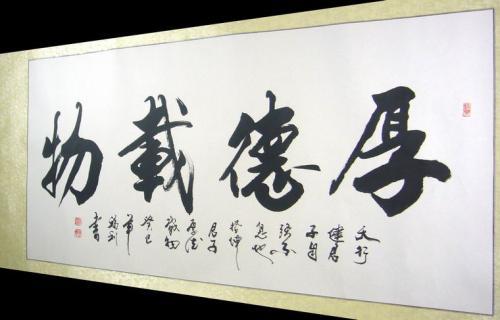 厚德載物
天行
健君
子自
强不
息地
势坤
君子
厚德
載物
癸巳
年
书